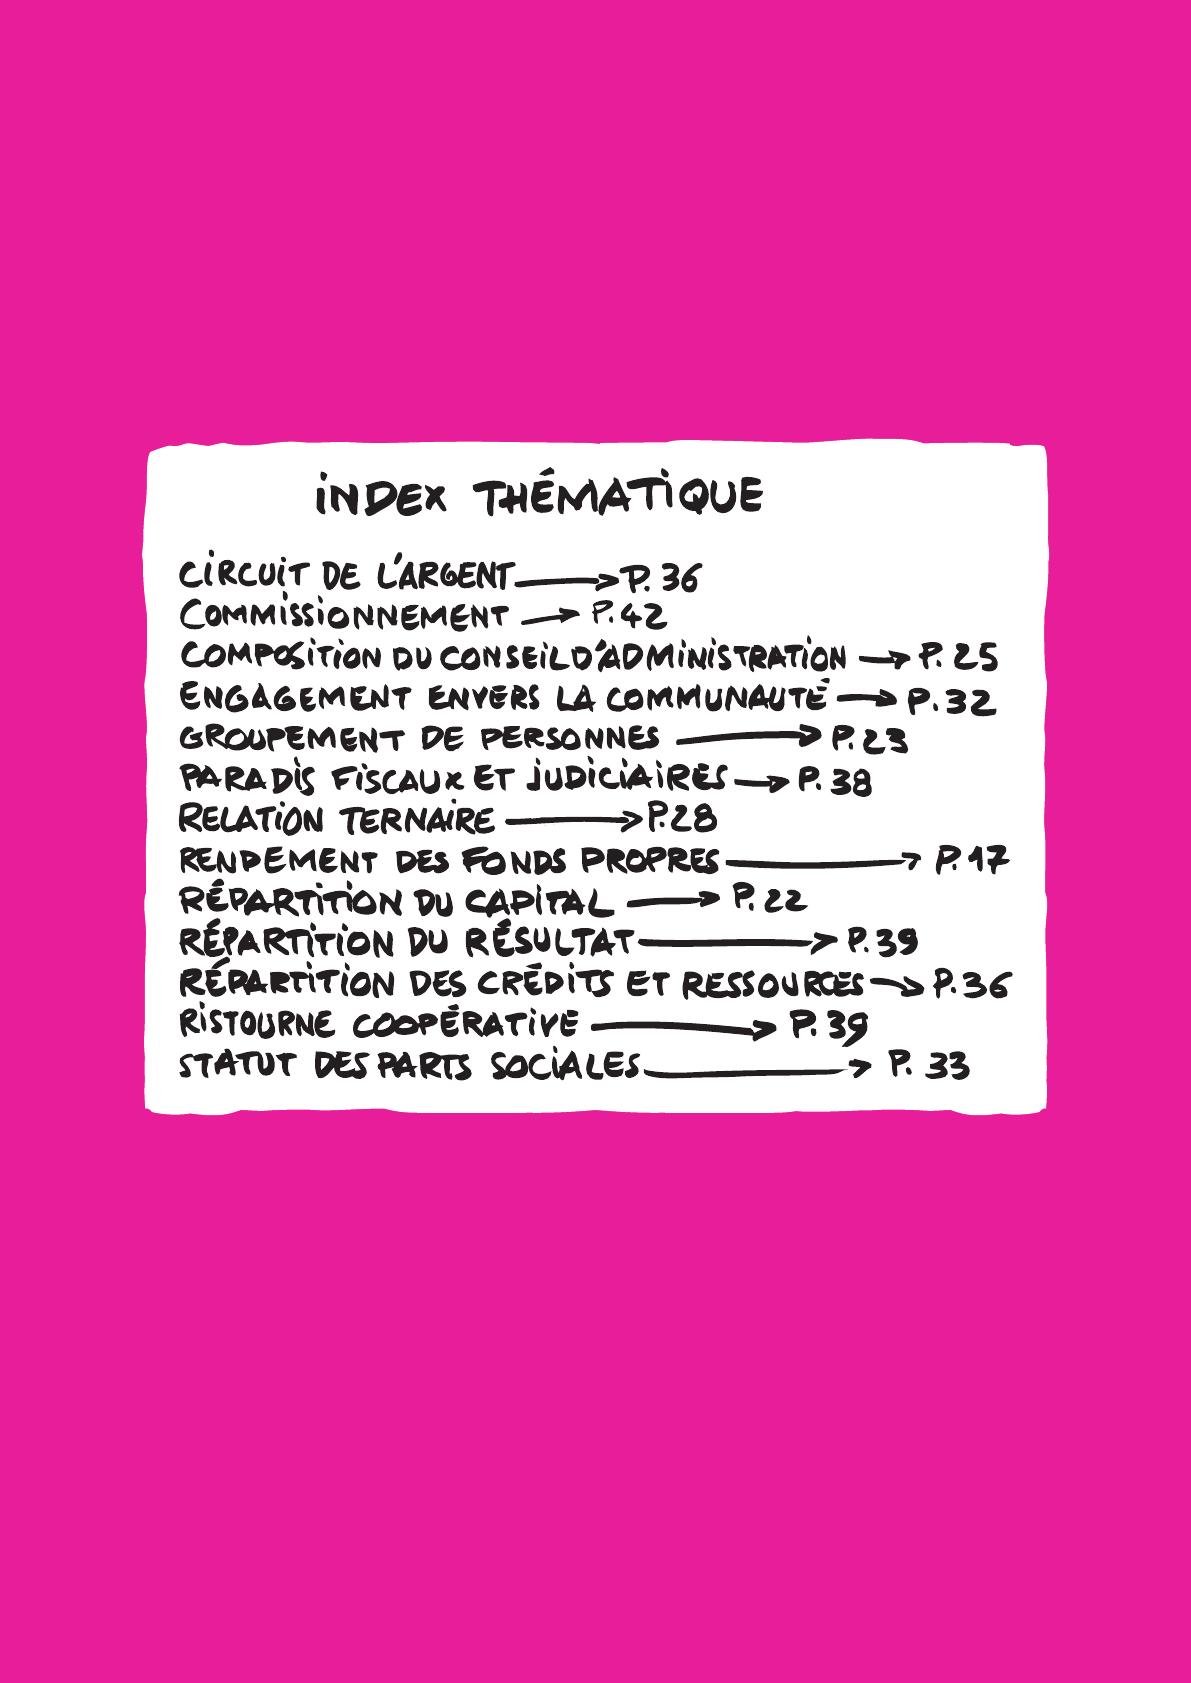 iNDEX THÉMATiQUE
CiRCUiT DE L'ARGENT → P. 36
COMMiSSiONNEMENT → P. 42
COMPOSiTiON DU CONSEiL D'ADMiNiSTRATiON → P. 25
ENGAGEMENT ENVERS LA COMMUNAUTÉ → P. 32
GROUPEMENT DE PERSONNES → P. 23
PARADiS FiSCAUX ET JUDiCiAiRES → P. 38
RELATiON TERNAiRE → P. 28
RENDEMENT DES FONDS PROPRES → P. 17
RÉPARTiTiON DU CAPiTAL → P. 22
RÉPARTiTiON DU RÉSULTAT → P. 39
RÉPARTiTiON DES CRÉDiTS ET RESSOURCES → P. 36
RiSTOURNE COOPÉRATiVE → P. 39
STATUT DES PARTS SOCiALES → P. 33